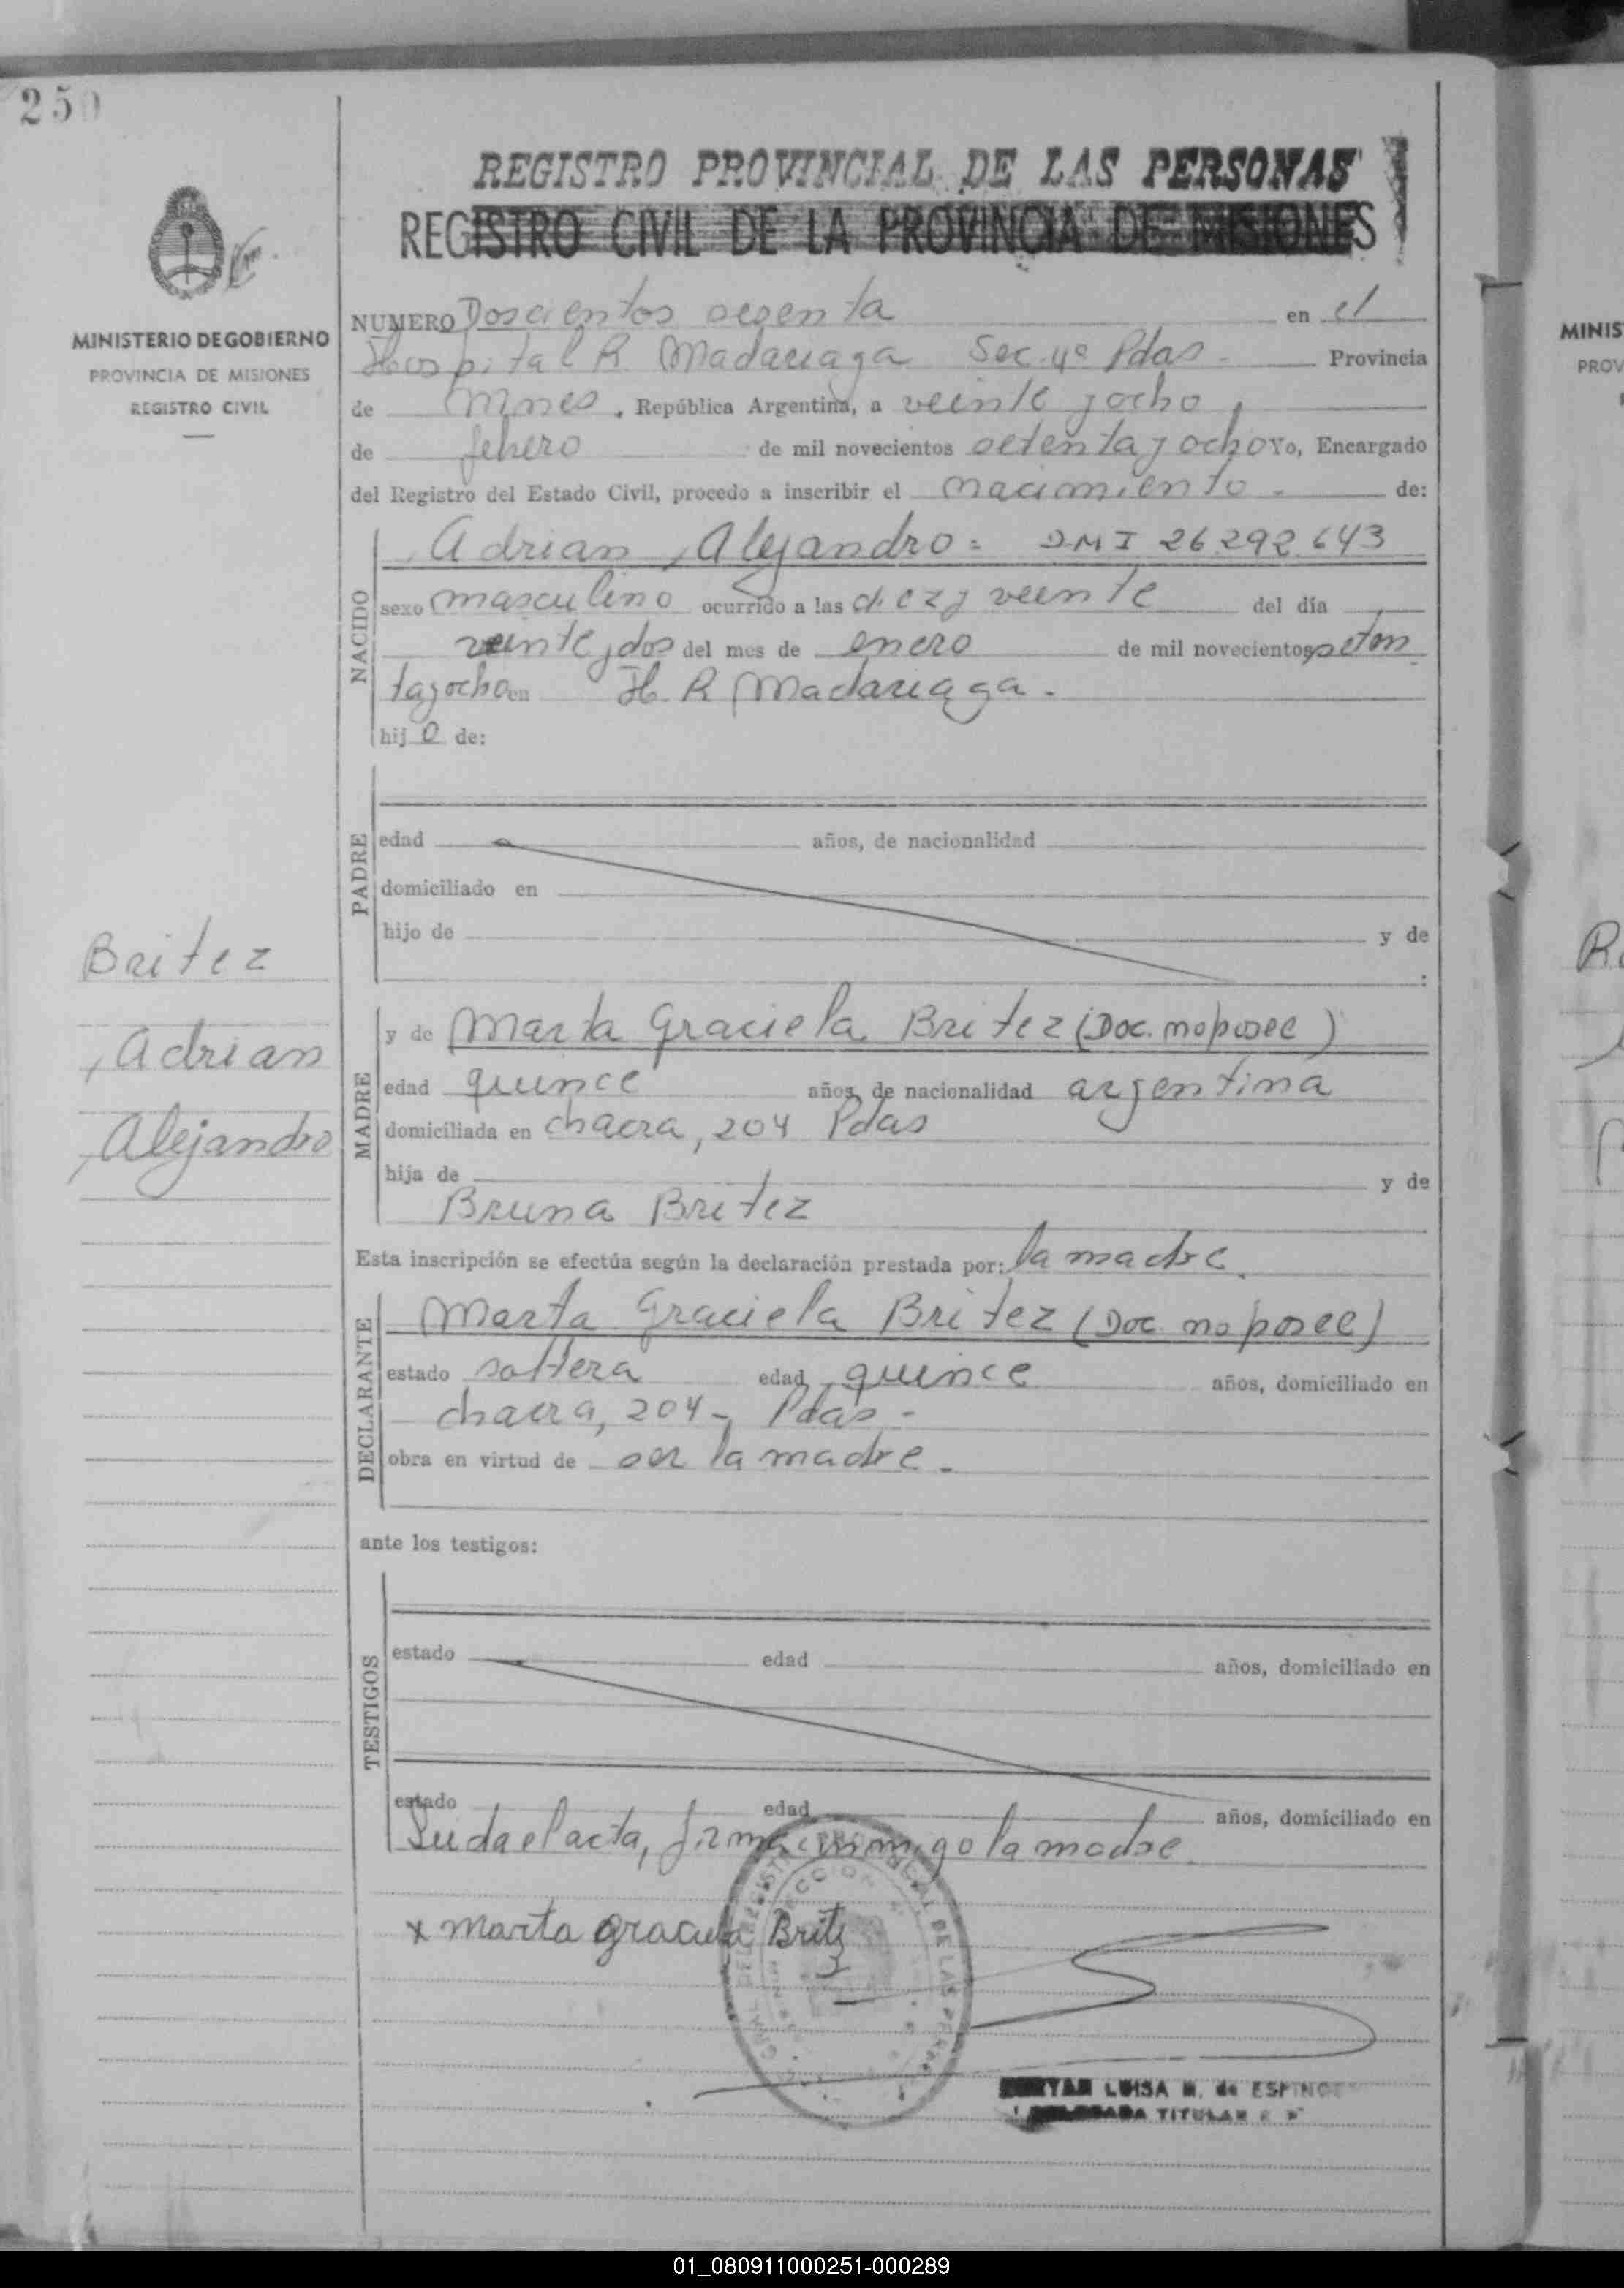 250
REGISTRO PROVINCIAL DE LAS PERSONAS
REGISTRO CIVIL DE LA PROVINCIA DE MISIONES
MINISTERIO DE GOBIERNO
PROVINCIA DE MISIONES
REGISTRO CIVIL
NUMERO Doscientos sesenta en el
Hospital R. Madariaga Sec. 4º Pdas - Provincia
de Mnes, República Argentina, a veinte y ocho,
de febrero de mil novecientos setenta y ocho Yo, Encargado
del Registro del Estado Civil, procedo a inscribir el nacimiento - de:
NACIDO
, Adrian, Alejandro = DNI 26.292.643
sexo masculino ocurrido a las diez y veinte del día
veinte y dos del mes de enero de mil novecientos seten
ta y ocho en H. R. Madariaga.
hij o de:
PADRE
edad años, de nacionalidad
domiciliado en
hijo de y de
:
Britez
, Adrian
, Alejandro
MADRE
y de Marta Graciela Britez (Doc. no posee)
edad quince años, de nacionalidad argentina
domiciliada en chacra, 204 Pdas
hija de y de
Bruna Britez
Esta inscripción se efectúa según la declaración prestada por: la madre.
DECLARANTE
Marta Graciela Britez (Doc. no posee)
estado soltera edad quince años, domiciliado en
chacra, 204 - Pdas -
obra en virtud de ser la madre.
ante los testigos:
TESTIGOS
estado edad años, domiciliado en
estado edad años, domiciliado en
Leida el acta, firma conmigo la madre.
x Marta Graciela Britez
LUISA M. de ESPINO
TITULAR
MINIS
PROV
01_080911000251-000289